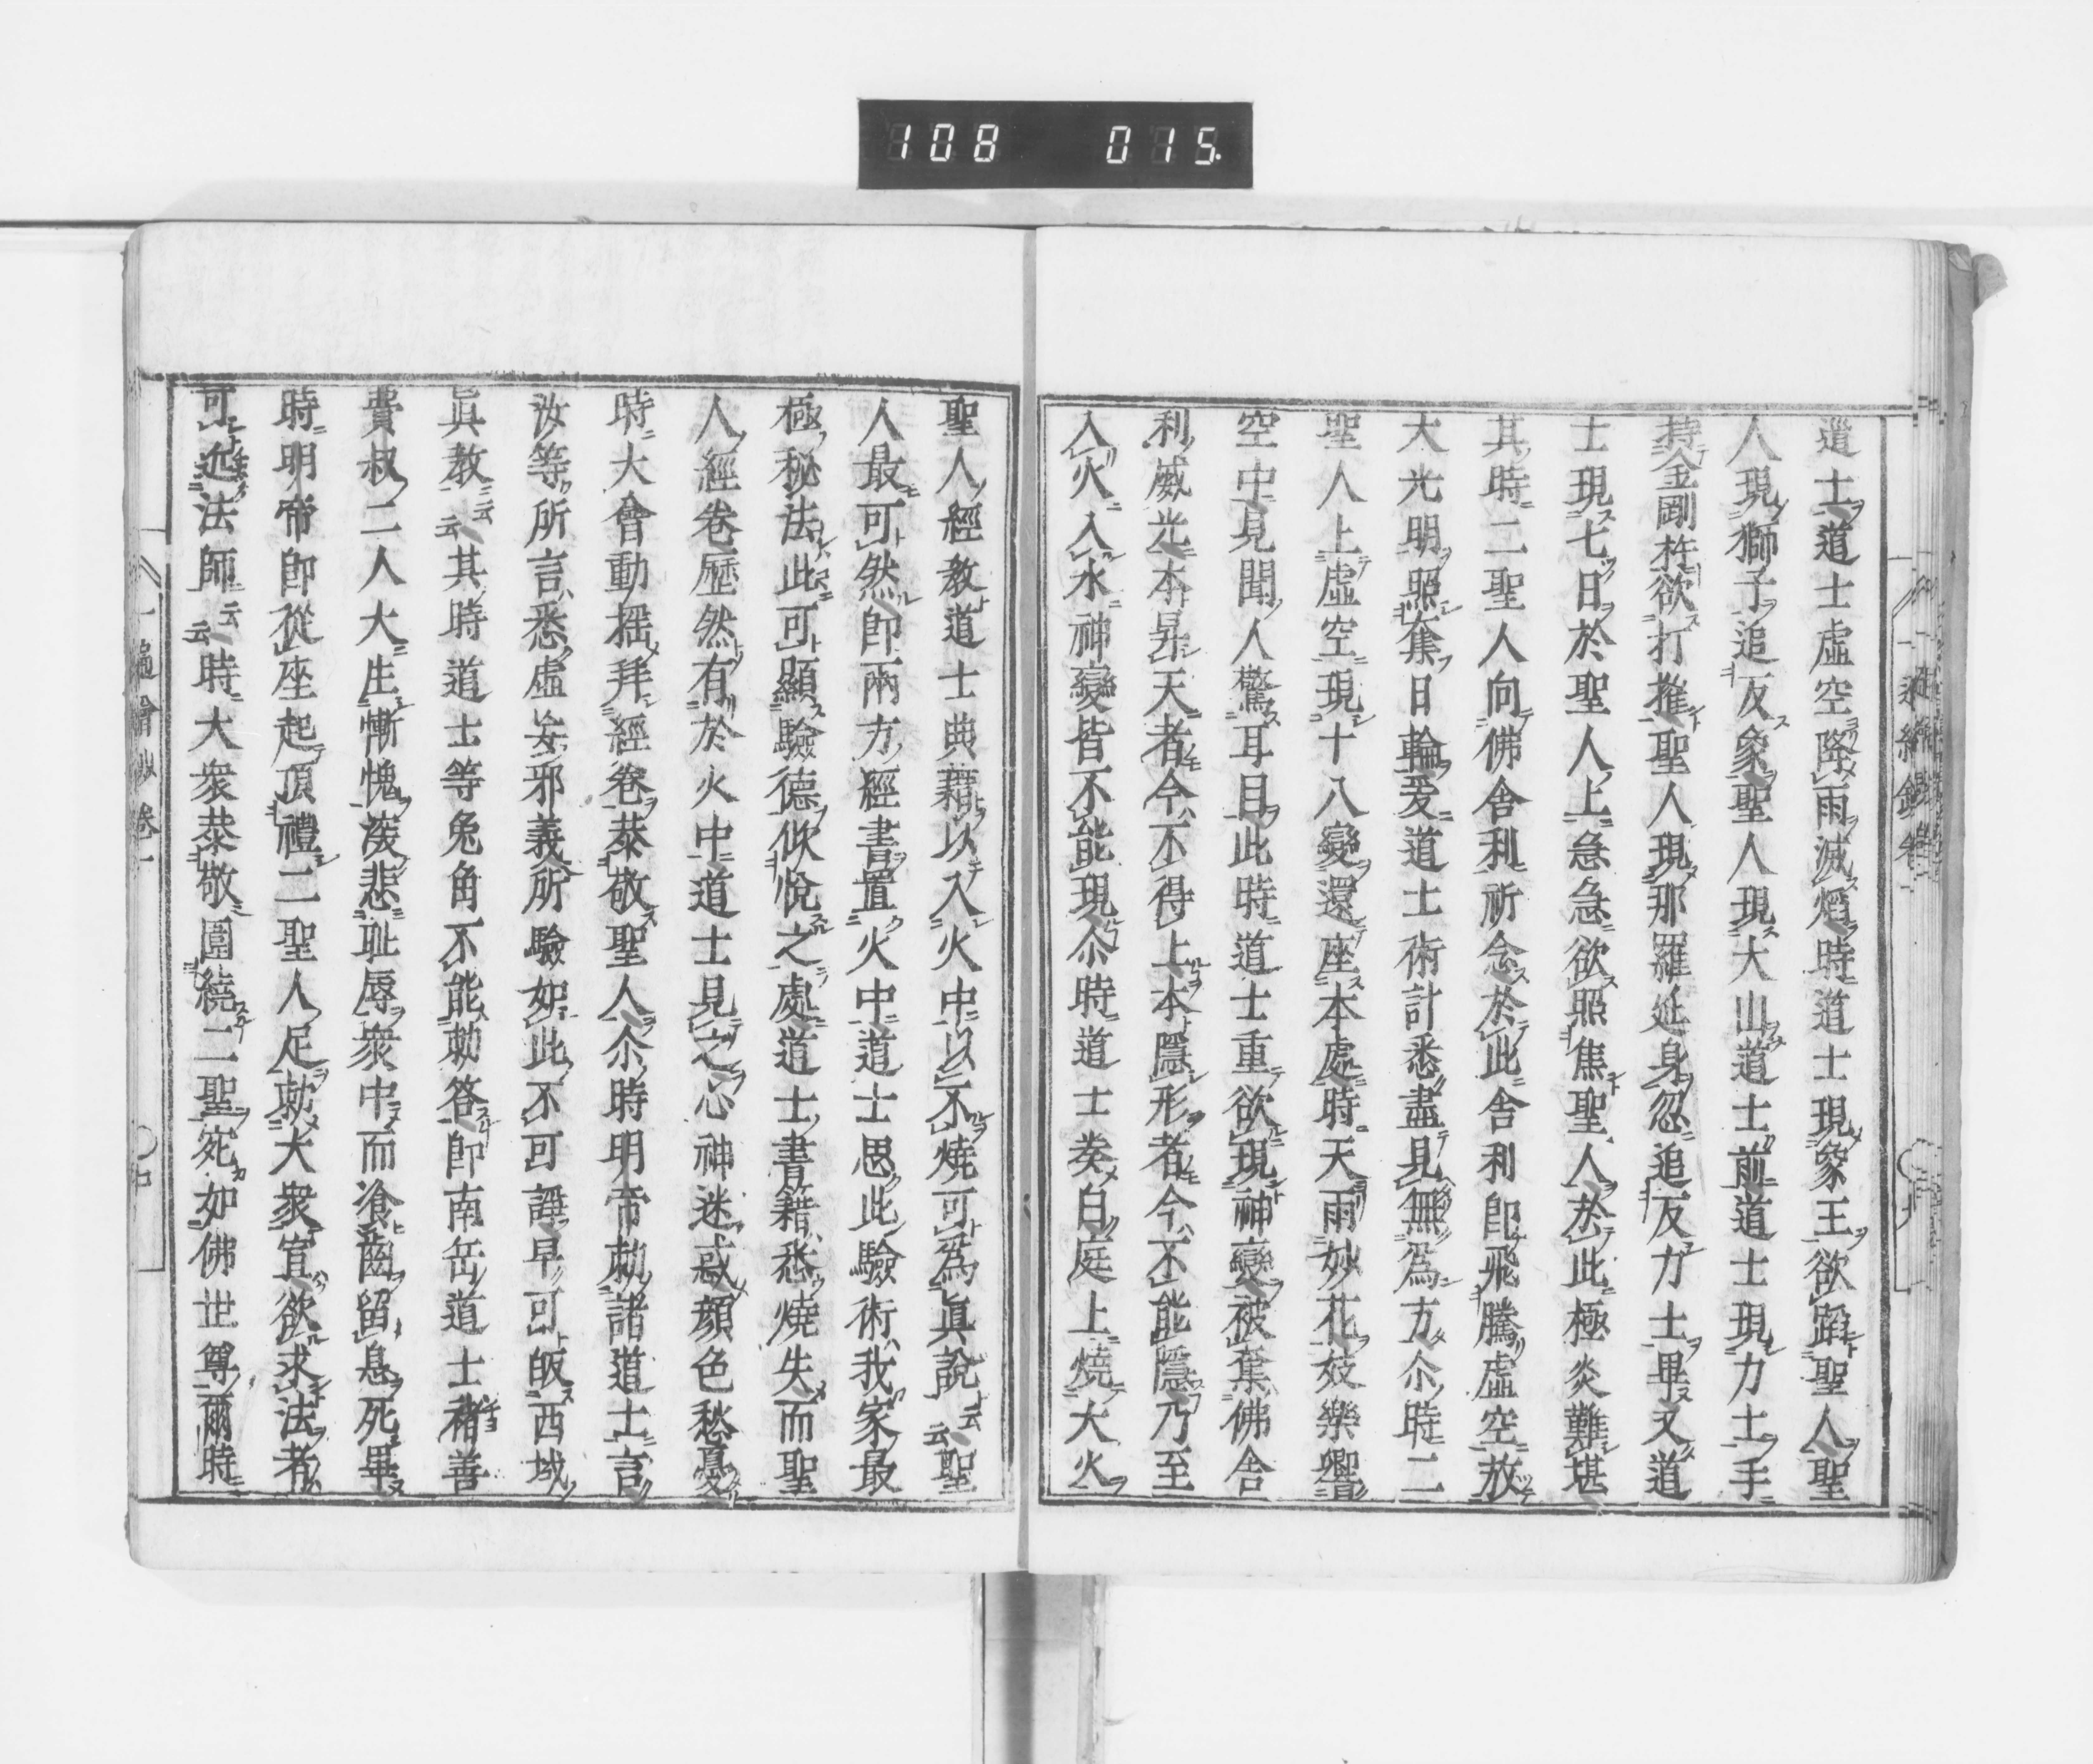 108 015.
道士道士虛空降雨滅熖時道士現象王欲蹈聖人聖
人現獅子追反象聖人現大山道士前道士現力士手
持金剛杵欲打摧聖人現那羅延身忽追反力士畢又道
士現七日於聖人上急急欲照焦聖人於此極炎難堪
其時二聖人向佛舍利祈念於此舍利卽飛騰虛空放
大光明照奪日輪爰道士術計悉盡見無爲方尒時二
聖人上虛空現十八變還座本處時天雨妙花妓樂響
空中見聞人驚耳目此時道士重欲現神變被奪佛舍
利威光本昇天者今不得上本隱形者今不能隱乃至
入火入水神變皆不能現尒時道士奏白庭上燒大火
聖人經教道士典籍以入火中以不燒可爲眞說云云聖
人最可然卽兩方經書置火中道士思此驗術我家最
極秘法此可顯驗德欣悅之處道士書籍悉燒失而聖
人經卷歷然有於火中道士見之心神迷惑顔色愁憂
時大會動搖拜經卷恭敬聖人尒時明帝勅諸道士言
汝等所言悉虛妄邪義所驗如此不可誣早可皈西域
眞教云云其時道士等兔角不能勅答卽南岳道士褚善
費叔二人大生慚愧溦悲耻辱衆中而飡齒留息死畢
時明帝卽從座起頂禮二聖人足勅大衆宣欲求法者
可近法師云云時大衆恭敬圍繞二聖宛如佛世尊爾時